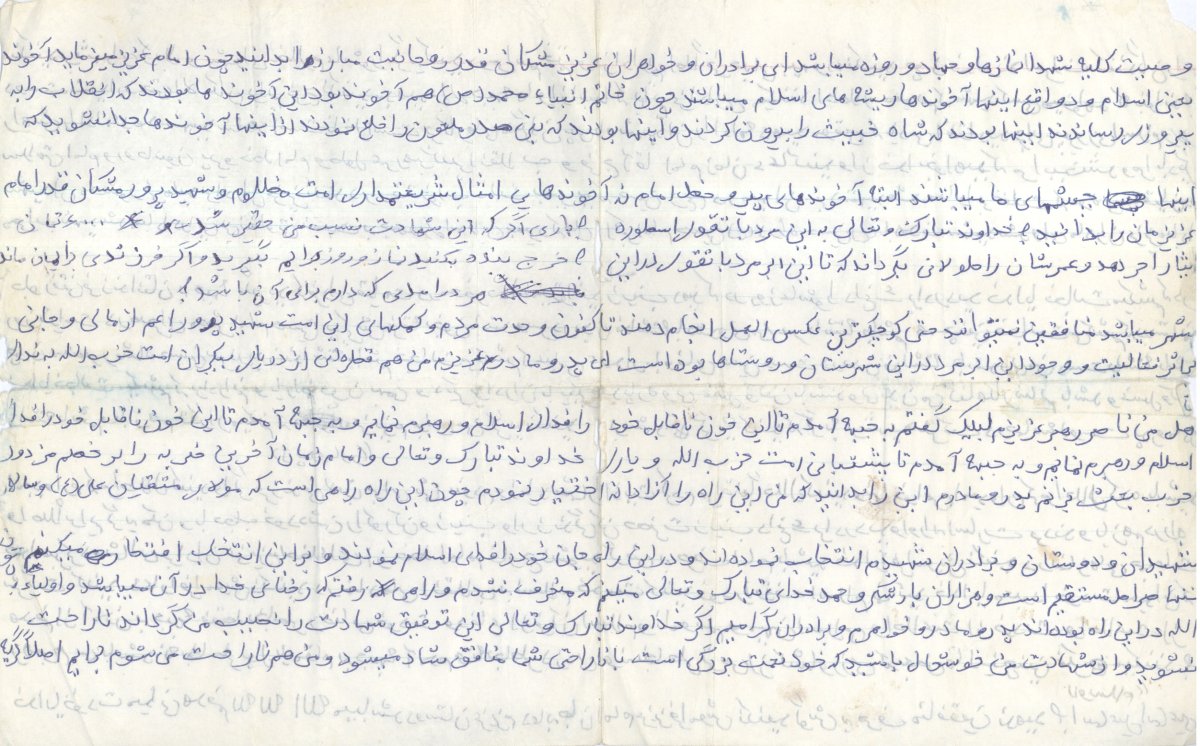 وصیت کلیه شهدا نمازها و جهاد و روزه میباشد ای برادران و خواهران عزیز مشکان قدر روحانیت مبارز را بدانید چون امام عزیز میفرماید آخوند
یعنی اسلام و در واقع اینها آخوندها ریشه های اسلام میباشند چون خاتم انبیاء محمد (ص) هم آخوند بود این آخوند ها بودند که انقلاب را به
پیروزی رساندند اینها بودند که شاه خبیث را بیرون کردند و اینها بودند که بنی صدر ملعون را خلع نمودند از اینها آخوندها جدا نشوید که
اینها چشمهای ما میباشند البته آخوندهای پیرو خط امام نه آخوندهایی امثال شریعتمداری امت مظلوم و شهید پرور مشکان قدر امام
عزیزمان را بدانید خداوند تبارک و تعالی به این مرد با تقوی اسطوره
ایثار اجر دهد و عمرشان را طولانی بگرداند که تا این ابرمرد با تقوی در این
باری اگر که این شهادت نصیب من حقیر شد
خرج بنده بکنید نماز و روزه برایم بگیرید و اگر فرزندی
هر درآمدی که دارم برای آن باشد
شهر میباشد منافقین نمیتوانند حتی کوچکترین عکس العمل انجام دهند تاکنون وحدت مردم و کمکهای این امت شهید پرور اعم از مالی و جانی
اثر فعالیت و وجود این ابرمرد در این شهرستان و روستاها بوده است ای پدر و مادر عزیزم من هم قطره ای از دریای بیکران امت حزب الله به ندای
هل من ناصر رهبر عزیزم لبیک گفتم به جبهه آمدم تا این خون ناقابل خود را فدای اسلام و رهبرم نمایم و به جبهه آمدم تا این خون ناقابل خود را فدای
اسلام و رهبرم نمایم و به جبهه آمدم تا پشتیبانی امت حزب الله و یاری خداوند تبارک و تعالی و امام زمان آخرین ضربه را بر خصم مزدور
حزب بعث بزنم پدر و مادرم این را بدانید که من این راه را آزادانه اختیار نمودم چون این راه راهی است که مولای متقیان علی (ع) و سالار
شهیدان و دوستان و برادران شهیدم انتخاب نموده اند و در این راه جان خود را فدای اسلام نمودند و بر این انتخاب افتخار میکنم چون
تنها صراط مستقیم است و هزاران بار شکر و حمد خدای تبارک و تعالی میکنم که منحرف نشدم و راهی رفتم که رضای خدا در آن میباشد و اولیاء
الله در این راه بوده اند پدر و مادر و خواهرم و برادران گرامیم اگر خداوند تبارک و تعالی این توفیق شهادت را نصیب من گرداند ناراحت
نشوید و از شهادت من خوشحال باشید که خود نعمت بزرگی است با ناراحتی شما منافق شاد میشود و من هم ناراحت می شوم برایم اصلاً گریه